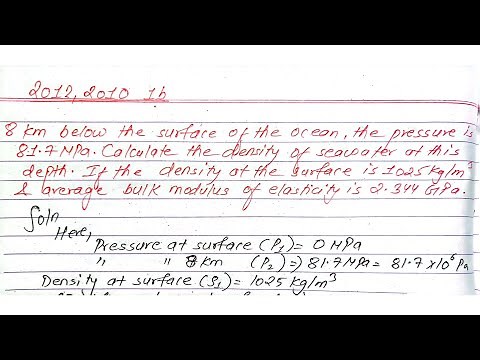 2012, 2010 1b
8 km below the surface of the ocean, the pressure is
81.7 MPa. Calculate the density of seawater at this
depth. If the density at the surface is 1025 kg/m³
& average bulk modulus of elasticity is 2.344 GPa.
Soln
Here,
Pressure at surface (P₁) = 0 MPa
" " 8 km (P₂) => 81.7 MPa = 81.7 x10⁶ Pa
Density at surface (S₁) = 1025 kg/m³